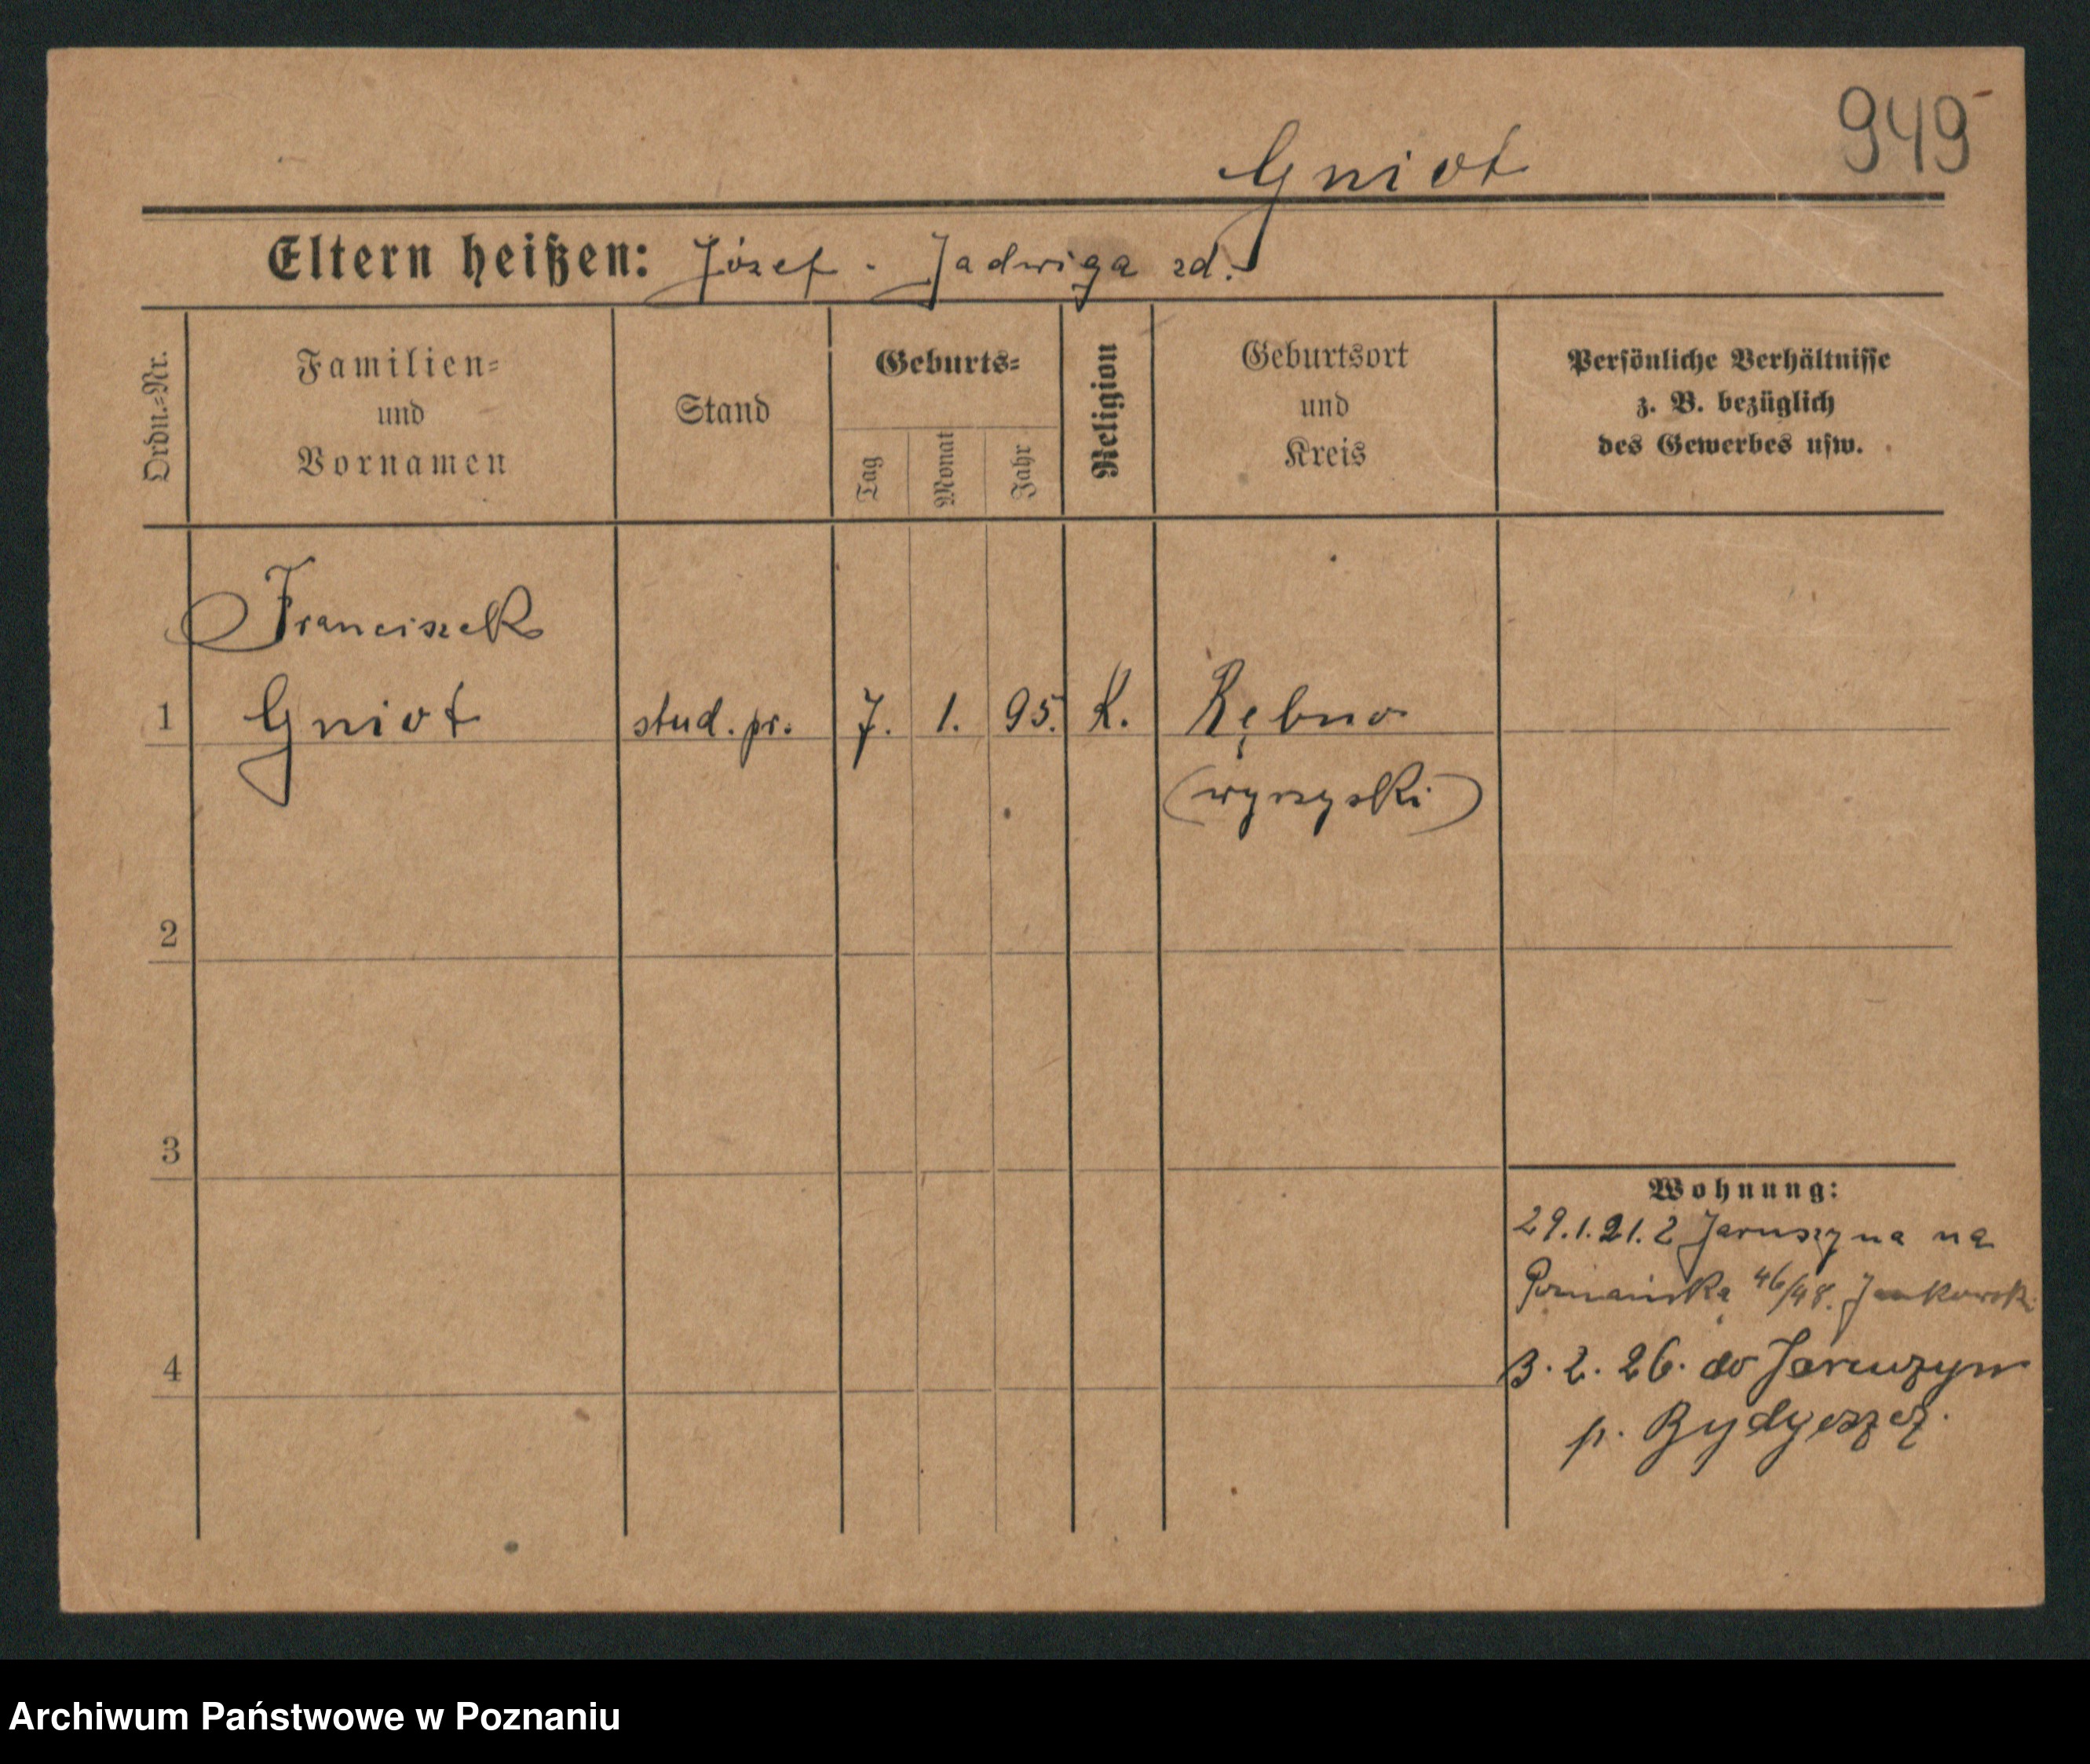 949
Gniot
Eltern heißen: Józef - Jadwiga zd.
Ordn.-Nr.
Familien-
und
Vornamen
Stand
Geburts-
Tag
Monat
Jahr
Religion
Geburtsort
und
Kreis
Persönliche Verhältnisse
z. B. bezüglich
des Gewerbes usw.
Franciszek
1 Gniot stud. pr. 7. 1. 95. K.
(wyrzyski)
2
3
Wohnung:
29.1.21. z Jaruszyna na
46/48.
4
2. 26. do Jaruszyn
p. Bydgoszcz.
Archiwum Państwowe w Poznaniu